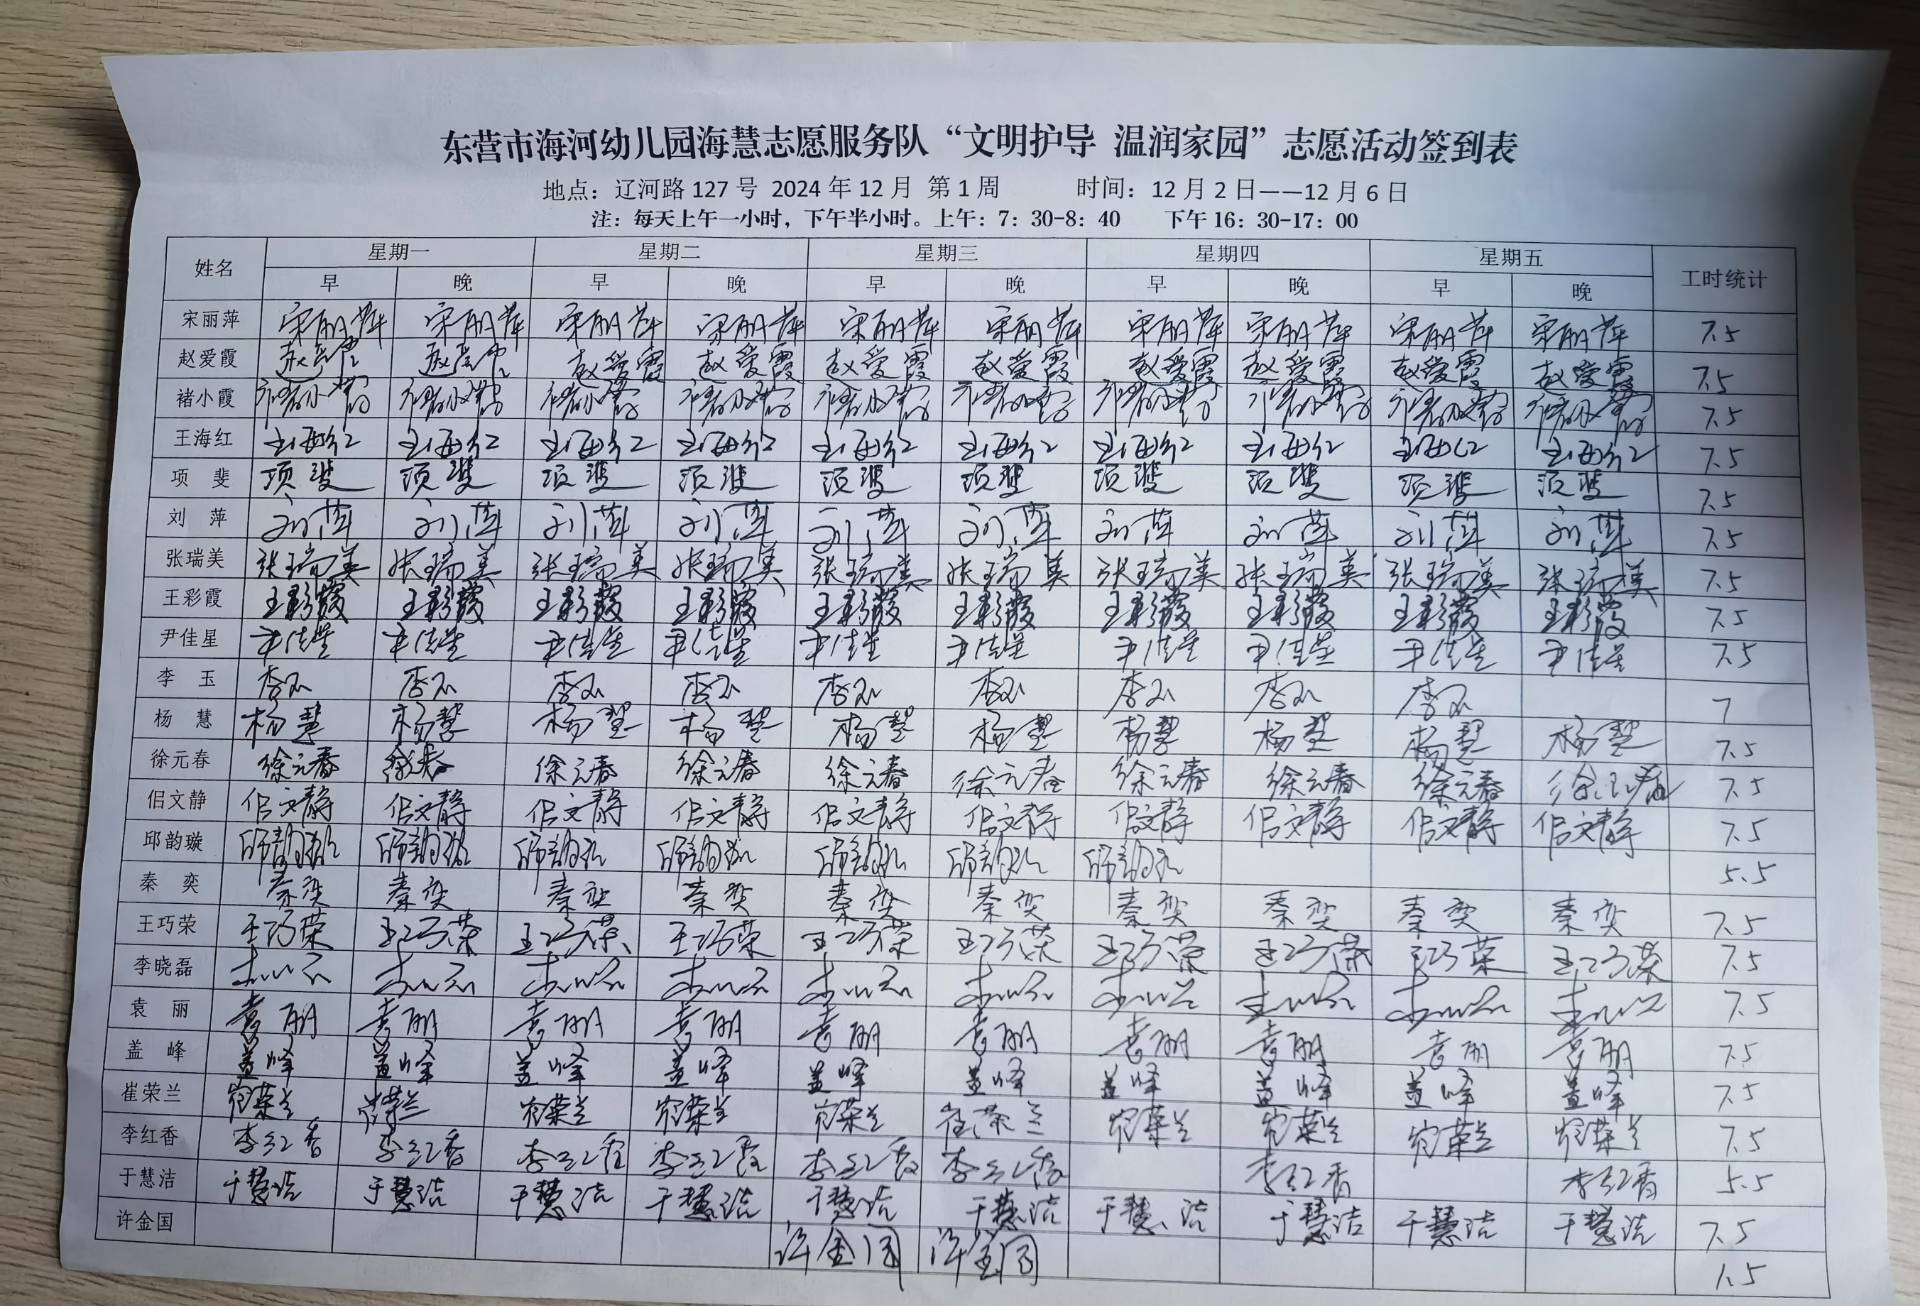 东营市海河幼儿园海慧志愿服务队“文明护导 温润家园”志愿活动签到表
地点：辽河路 127 号 2024 年 12 月 第 1 周 时间：12 月 2 日——12 月 6 日
注：每天上午一小时，下午半小时。上午：7：30-8：40 下午 16：30-17：00
姓名 星期一 星期二 星期三 星期四 星期五 工时统计
早 晚 早 晚 早 晚 早 晚 早 晚
宋丽萍 宋丽萍 宋丽萍 宋丽萍 宋丽萍 宋丽萍 宋丽萍 宋丽萍 宋丽萍 宋丽萍 宋丽萍 7.5
赵爱霞 赵爱霞 赵爱霞 赵爱霞 赵爱霞 赵爱霞 赵爱霞 赵爱霞 赵爱霞 赵爱霞 赵爱霞 7.5
褚小霞 褚小霞 褚小霞 褚小霞 褚小霞 褚小霞 褚小霞 褚小霞 褚小霞 褚小霞 褚小霞 7.5
王海红 王海红 王海红 王海红 王海红 王海红 王海红 王海红 王海红 王海红 王海红 7.5
项 斐 项斐 项斐 项斐 项斐 项斐 项斐 项斐 项斐 项斐 项斐 7.5
刘 萍 刘萍 刘萍 刘萍 刘萍 刘萍 刘萍 刘萍 刘萍 刘萍 刘萍 7.5
张瑞美 张瑞美 张瑞美 张瑞美 张瑞美 张瑞美 张瑞美 张瑞美 张瑞美 张瑞美 张瑞美 7.5
王彩霞 王彩霞 王彩霞 王彩霞 王彩霞 王彩霞 王彩霞 王彩霞 王彩霞 王彩霞 王彩霞 7.5
尹佳星 尹佳星 尹佳星 尹佳星 尹佳星 尹佳星 尹佳星 尹佳星 尹佳星 尹佳星 尹佳星 7.5
李 玉 李玉 李玉 李玉 李玉 李玉 李玉 李玉 李玉 李玉 7
杨 慧 杨慧 杨慧 杨慧 杨慧 杨慧 杨慧 杨慧 杨慧 杨慧 杨慧 7.5
徐元春 徐元春 徐元春 徐元春 徐元春 徐元春 徐元春 徐元春 徐元春 徐元春 徐元春 7.5
佀文静 佀文静 佀文静 佀文静 佀文静 佀文静 佀文静 佀文静 佀文静 佀文静 佀文静 7.5
邱韵璇 邱韵璇 邱韵璇 邱韵璇 邱韵璇 邱韵璇 邱韵璇 邱韵璇 5.5
秦 奕 秦奕 秦奕 秦奕 秦奕 秦奕 秦奕 秦奕 秦奕 秦奕 秦奕 7.5
王巧荣 王巧荣 王巧荣 王巧荣 王巧荣 王巧荣 王巧荣 王巧荣 王巧荣 王巧荣 王巧荣 7.5
李晓磊 7.5
袁 丽 袁丽 袁丽 袁丽 袁丽 袁丽 袁丽 袁丽 袁丽 袁丽 袁丽 7.5
盖 峰 盖峰 盖峰 盖峰 盖峰 盖峰 盖峰 盖峰 盖峰 盖峰 盖峰 7.5
崔荣兰 崔荣兰 崔荣兰 崔荣兰 崔荣兰 崔荣兰 崔荣兰 崔荣兰 崔荣兰 崔荣兰 崔荣兰 7.5
李红香 李红香 李红香 李红香 李红香 李红香 李红香 李红香 李红香 5.5
于慧洁 于慧洁 于慧洁 于慧洁 于慧洁 于慧洁 于慧洁 于慧洁 于慧洁 于慧洁 于慧洁 7.5
许金国 许金国 许金国 1.5